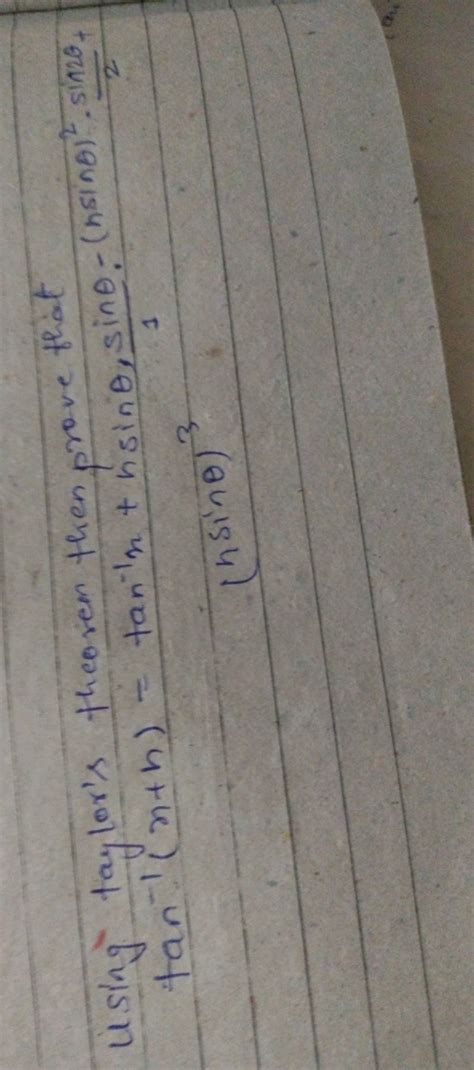 using taylor's theorem then prove that
tan⁻¹(x+h) = tan⁻¹x + hsinθ, sinθ/1 - (hsinθ)². sin2θ/2 +
(hsinθ)³